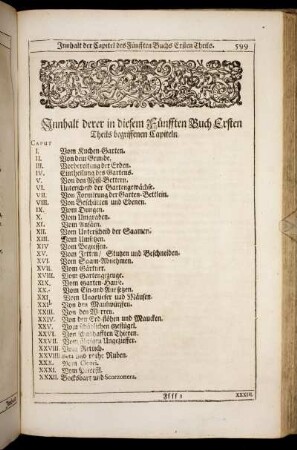 Innhalt der Capitel des Fünfften Buchs Ersten Theils. 599
Innhalt derer in diesem Fünfften Buch Ersten
Theils begriffenen Capiteln.
CAPUT
I. Vom Kuchen-Garten.
II. Von dem Grunde.
III. Vorbereitung der Erden.
IV. Eintheilung des Gartens.
V. Von den Mist-Bettern.
VI. Unterscheid der Gartengewächse.
VII. Von Formirung der Garten-Bettlein.
VIII. Von Beschütten und Ebenen.
IX. Vom Dungen.
X. Vom Umgraben.
XI. Vom Ansäen.
XII. Von Unterscheid der Saamen.
XIII. Vom Umsetzen.
XIV. Vom Begiessen.
XV. Vom Jetten/ Stutzen und Beschneiden.
XVI. Vom Saam-Abnehmen.
XVII. Vom Gärtner.
XVIII. Vom Gartengezeuge.
XIX. Vom Garten-Hause.
XX. Vom Ein- und Aussetzen.
XXI. Vom Ungeziefer und Mäusen.
XXII. Von den Maulwürffen.
XXIII. Von den
XXIV. Von den Erd-Flöhen und
XXV. Vom schädlichen Geflügel.
XXVI. Von Thieren.
XXVII. Von Ungeziefer.
XXVIII. Vom Rettich.
XXVIIII. und rothe Ruben.
XXX. Vom
XXXI. Vom
XXXII. Bocksbart und Scorzonera.
Ffff 2 XXXIII.